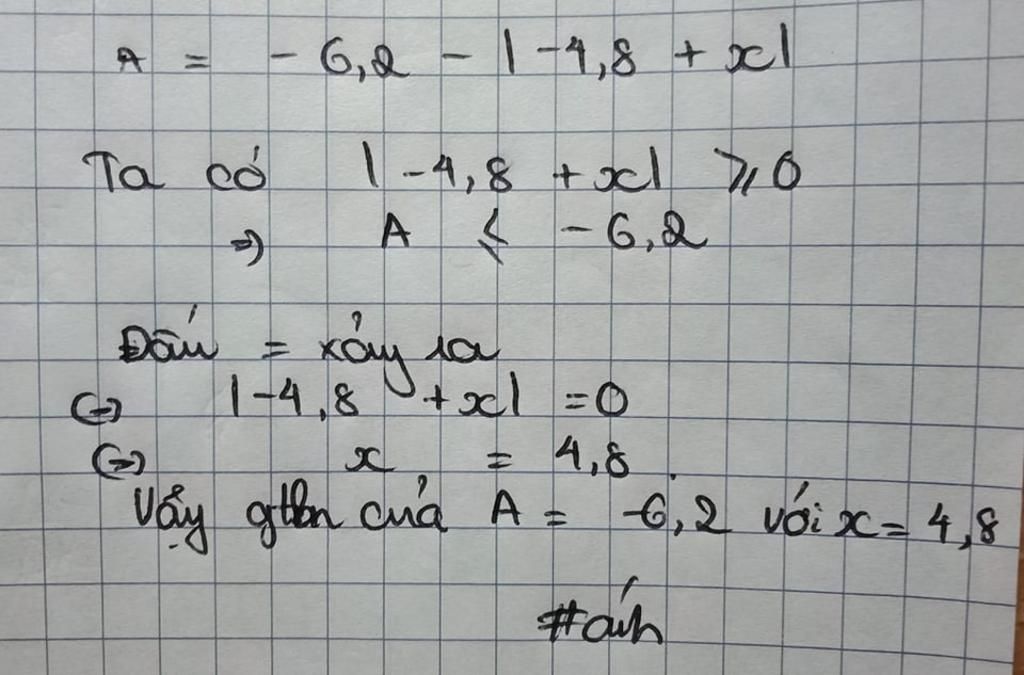 A = - 6,2 - |-4,8 + x|
Ta có |-4,8 + x| ⩾ 0
=> A ⩽ - 6,2
Dấu = xảy ra
<=> |-4,8 + x| = 0
<=> x = 4,8.
Vậy gtln của A = -6,2 với x = 4,8
#ánh